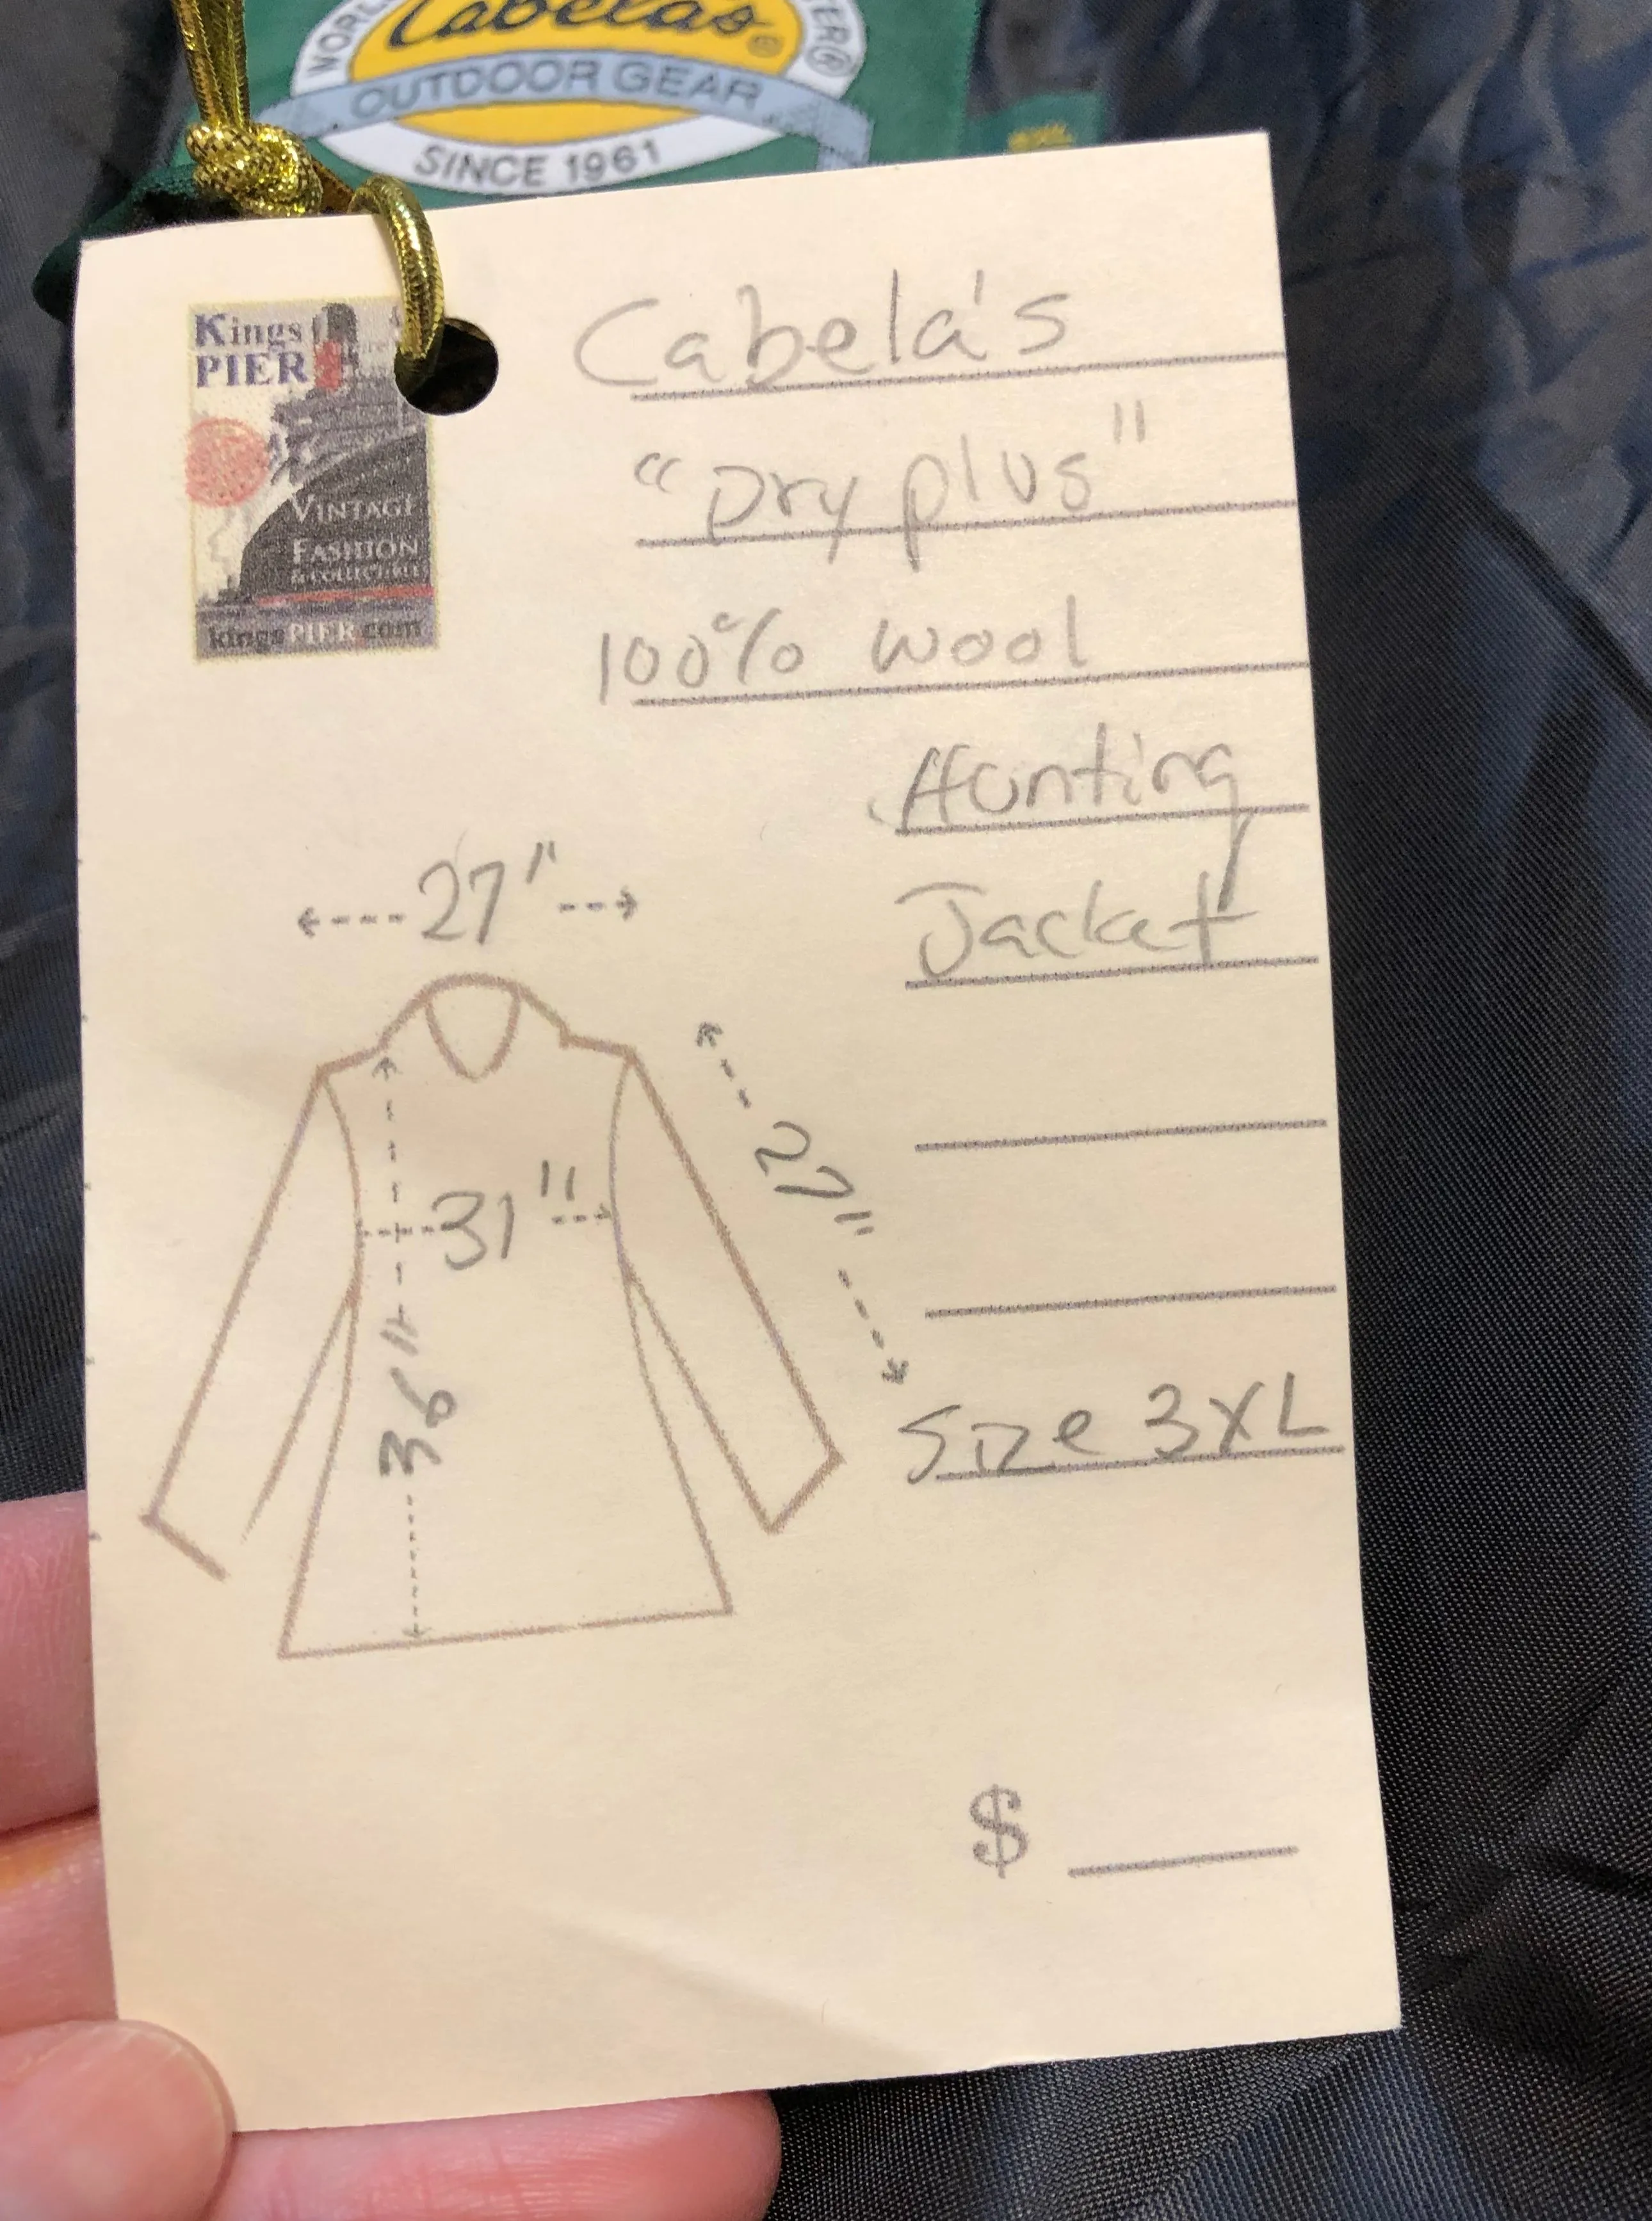 Cabela's®
OUTDOOR GEAR
SINCE 1961
Kings
PIER
VINTAGE
FASHION
& COLLECTIBLES
kingsPIER.com
Cabela's
"Dry plus"
100% wool
Hunting
Jacket
27"
27"
31"
36"
Size 3XL
$